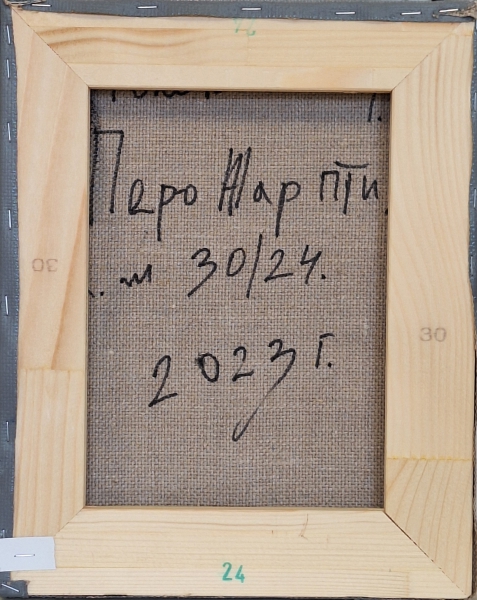 Перо Жар пти
.. м 30/24.
2023 г.
30
30
24